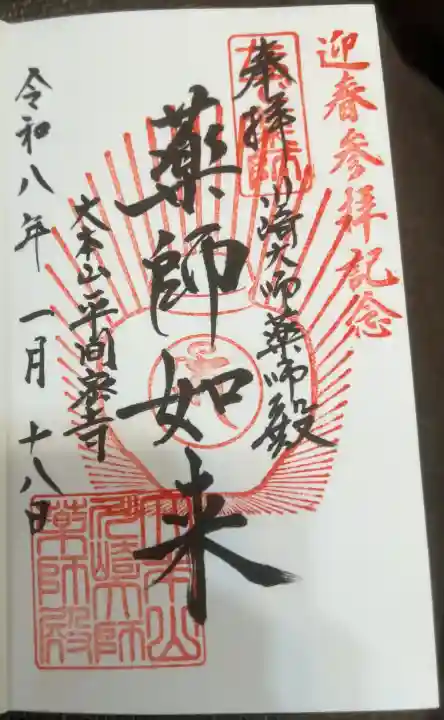 迎春参拝記念
奉拝
川崎大師薬師殿
薬師如来
大本山平間寺
令和八年 一月 十八日
大本山
川崎大師
薬師殿